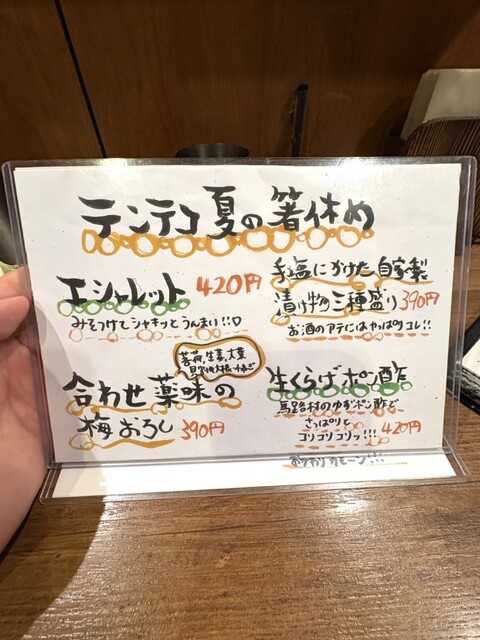 テンテコ夏の箸休め
エシャレット 420円
みそつけてシャキッとうんまい!!
手塩にかけた自家製
漬け物三種盛り 390円
お酒のアテにはやっぱりコレ!!
茗荷、生姜、大葉
合わせ薬味の
梅おろし 390円
生くらげポン酢
馬路村のゆずポン酢で
さっぱりと
コリコリコリッ!!! 420円